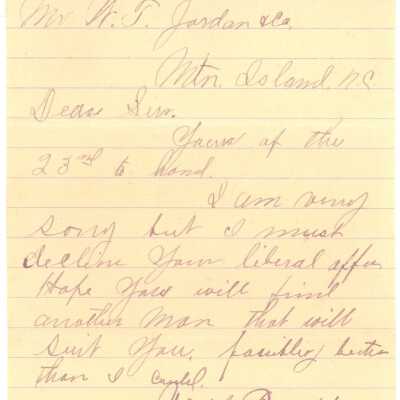 Mr W. T. Jordan & Co.
Mtn. Island, N.C
Dear Sirs.
Yours of the
23rd to hand.
I am very
sorry but I must
decline your liberal offer
Hope you will find
another man that will
suit you, possibly better
than I could.